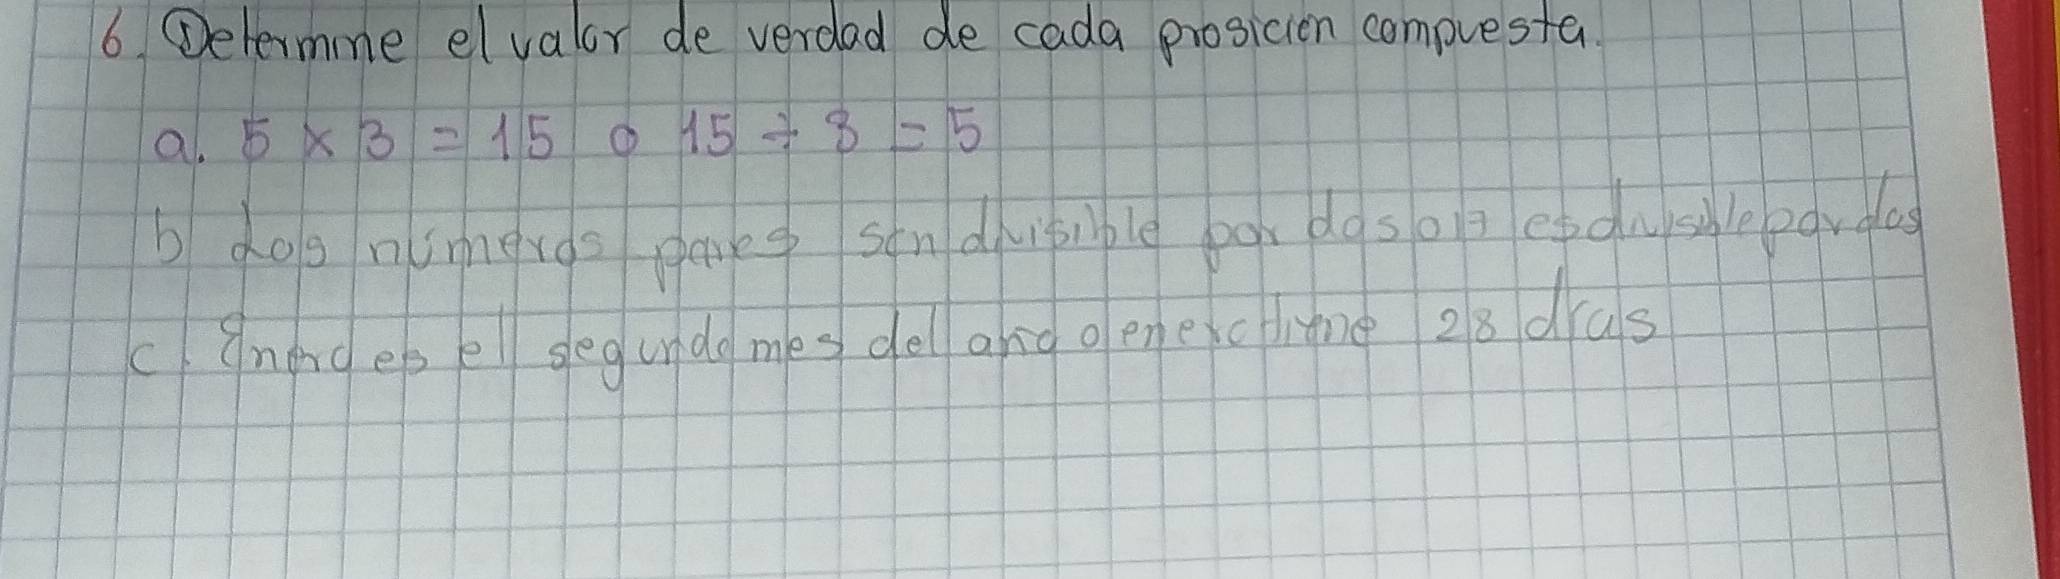 6. Determine el valor de verdad de cada prosicion compuesta.
a. 5 × 3 = 15 o 15 ÷ 3 = 5
b) Los numeros pares son divisible por dos o 17 es divisible por dos
c). Enero es el segundo mes del año o enero tiene 28 dias